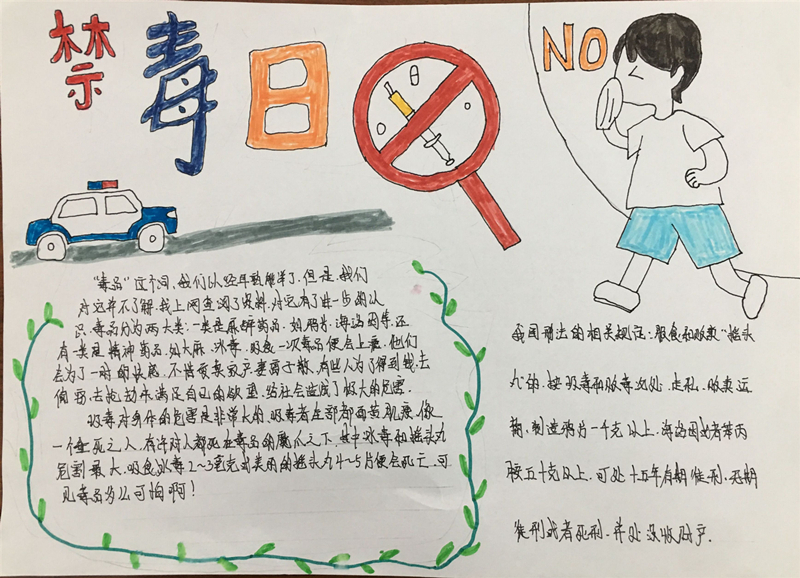 禁毒日
NO
“毒品”这个词,我们以经耳熟能详了,但是,我们
对它并不了解,我上网查阅了资料,对它有了进一步的认
识,毒品分为两大类:一类是麻醉药品,如,鸦片,海洛因等,还
有一类是精神药品,如大麻,冰毒,吸食一次毒品便会上瘾,他们
会为了一时的快感,不惜卖家产妻离子散,有些人为了得到钱,去
偷窃,去抢劫来满足自己的欲望,给社会造成了极大的危害.
吸毒对身体的危害是非常大的,吸毒者全部都面黄肌瘦,像
一个垂死之人,有许对人都死在毒品的魔爪之下,其中冰毒和摇头丸
危割最大,吸食冰毒2~3毫克或类用的摇头丸4~5片便会死亡,可
见毒品多么可怕啊!
我国刑法的相关规定:服食和贩卖“摇头
丸的,按吸毒和贩毒处.走私,贩卖运
输,制造鸦片一千克以上,海洛因或者苯丙
胺五十克以上,可处十五年有期徒刑,无期
徒刑或者死刑,并处没收财产.